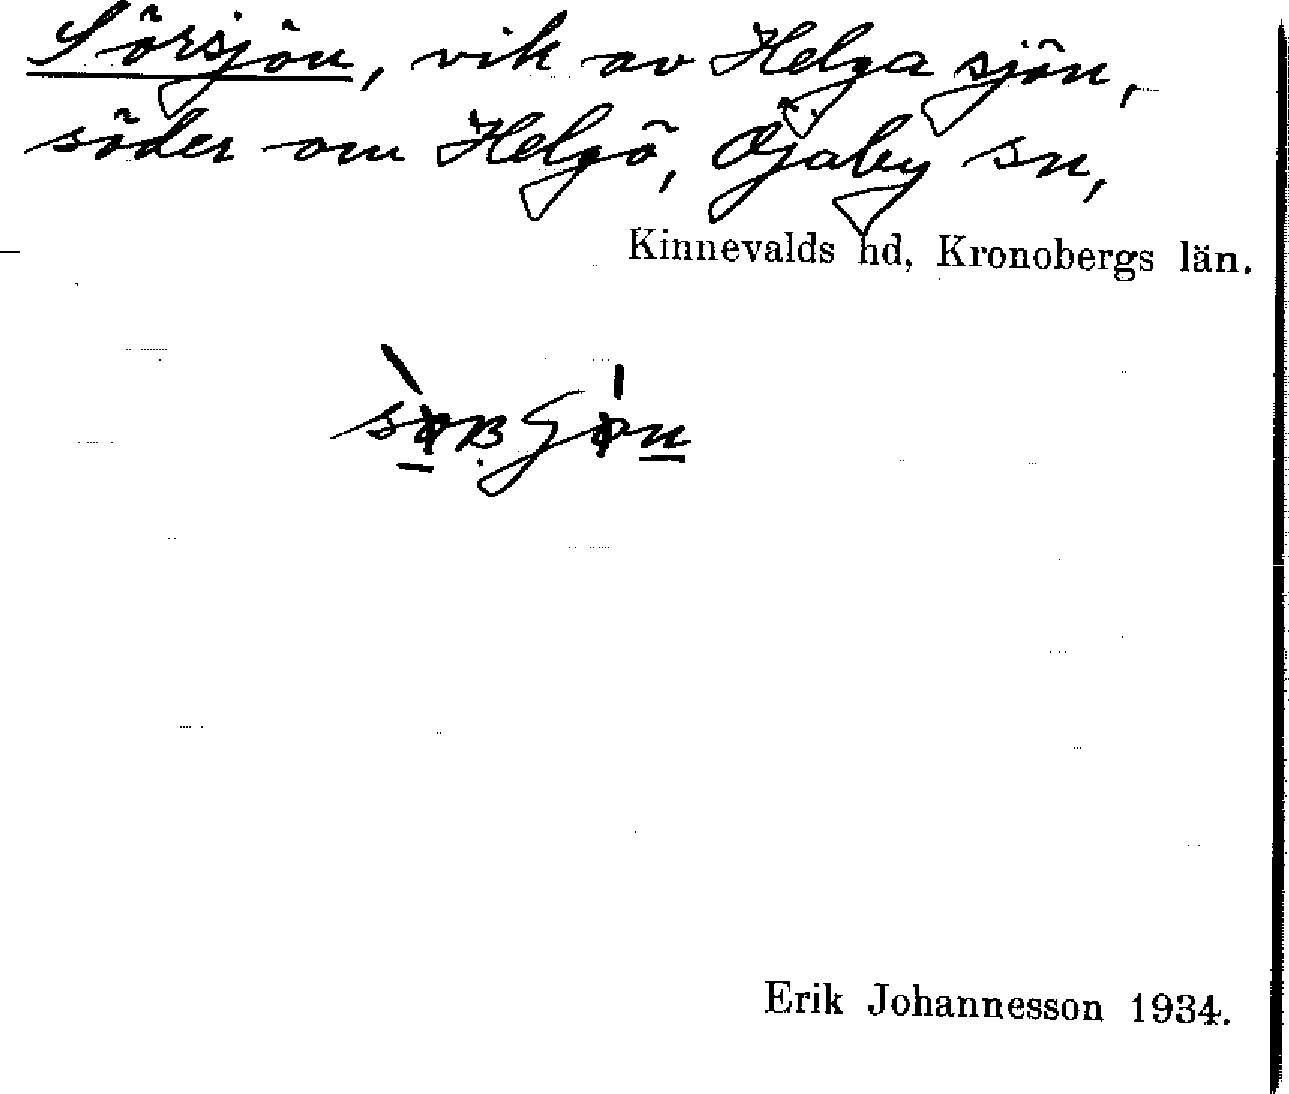 Sörsjön, vik av Helga sjön,
söder om Helgö, Öjaby sn,
Kinnevalds hd, Kronobergs län.
Erik Johannesson 1934.